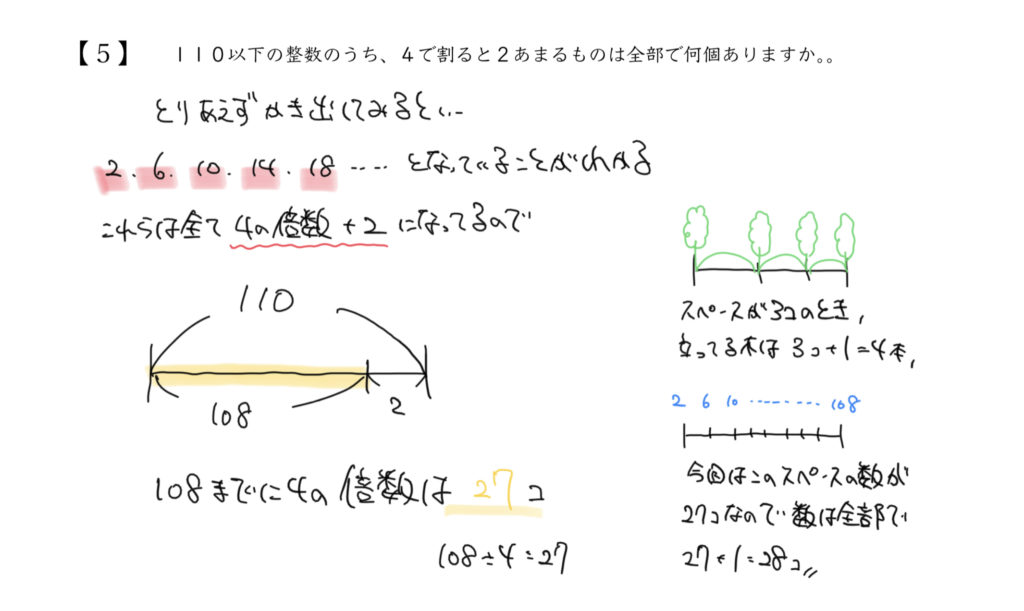 【５】 １１０以下の整数のうち、４で割ると２あまるものは全部で何個ありますか。。
とりあえずかき出してみると...
2. 6. 10. 14. 18 ..... となっていることがわかる
これらは全て 4の倍数 + 2 になってるので
110
108
2
108までに4の倍数は 27 コ
108÷4=27
スペースが3コのとき,
立ってる木は 3コ+1=4本,
2 6 10 ......... 108
今回はこのスペースの数が
27コなので数は全部で
27+1=28コ〃